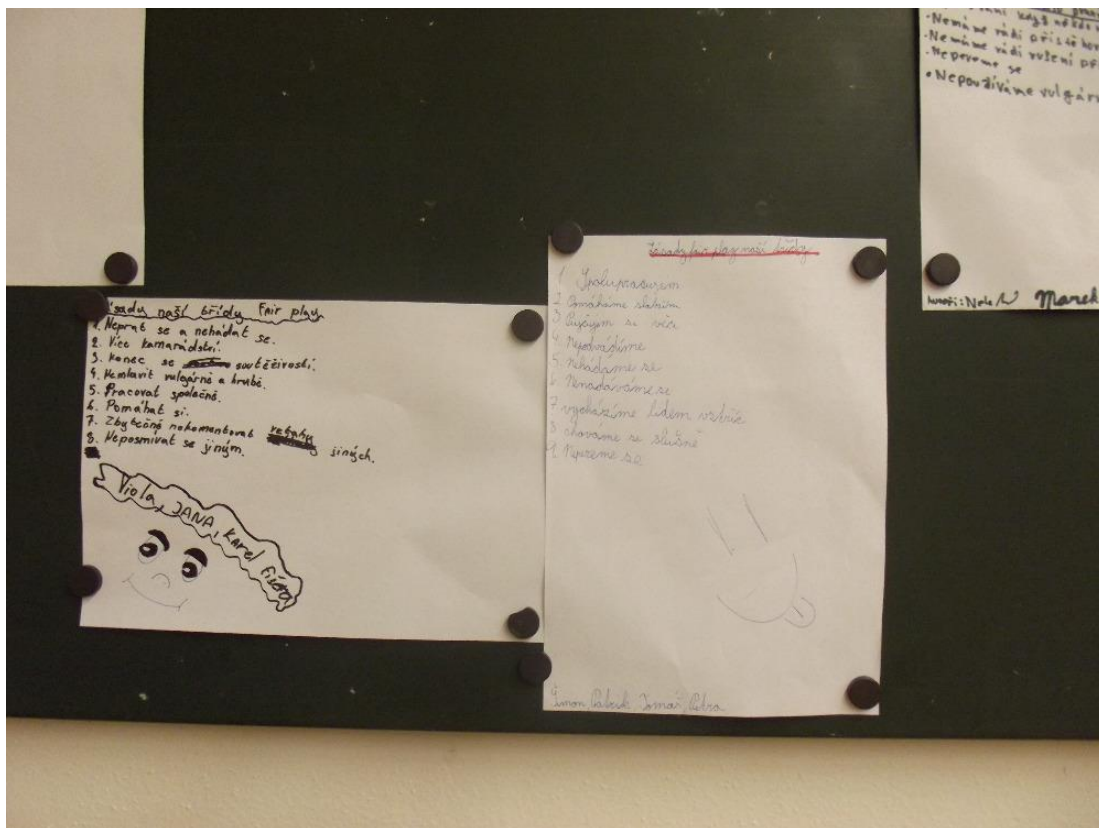 sady naší třídy Fair play
1. Neprat se a nehádat se.
2. Více kamarádství.
3. Konec se soutěživostí.
4. Nemluvit vulgárně a hrubě.
5. Pracovat společně.
6. Pomáhat si.
7. Zbytečně nekomentovat vztahy jiných.
8. Neposmívat se jiným.
Viola, JANA, Karel
Zásady fair play naší třídy
1. Spolupracujem
2. Pomáháme slabším
3. Půjčujem si věci
4. Nepodvádíme
5. Nehádáme se
6. Nenadáváme se
7. vycházíme lidem vstříc
8. chováme se slušně
9. Nepereme se
Šimon, Patrik, Tomáš, Petra
když někdo
•Nemáme rádi příště
•Nemáme rádi rušení
•Nepereme se
•Nepoužíváme vulgárn
autoři: Nela Marek